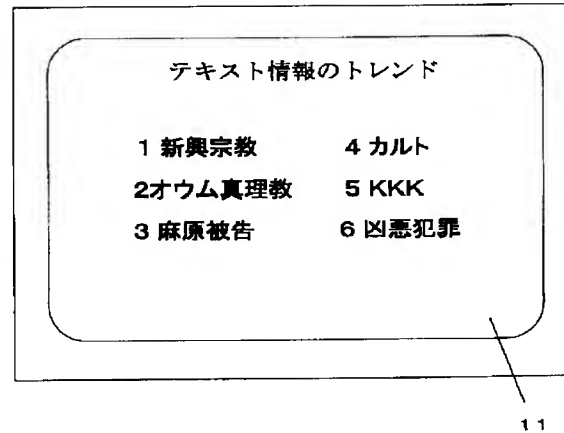 テキスト情報のトレンド
1 新興宗教
2オウム真理教
3 麻原被告
4 カルト
5 KKK
6 凶悪犯罪
11